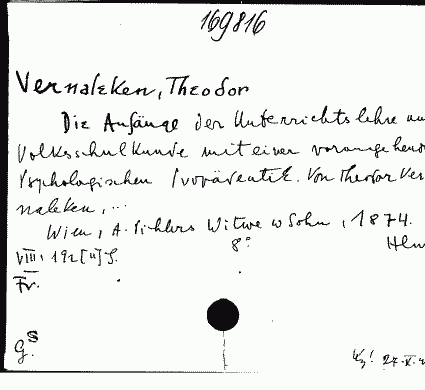 169816
Vernaleken, Theodor
Die Anfänge der Unterrichtslehre un
Volksschulkunde mit einer vorangehend
Psychologischen Propädeutik. Von Theodor Ver
naleken, ...
Wien, A. Pichlers Witwe u Sohn, 1874.
VIII, 192 [4] S. 8°
Fr.
G S